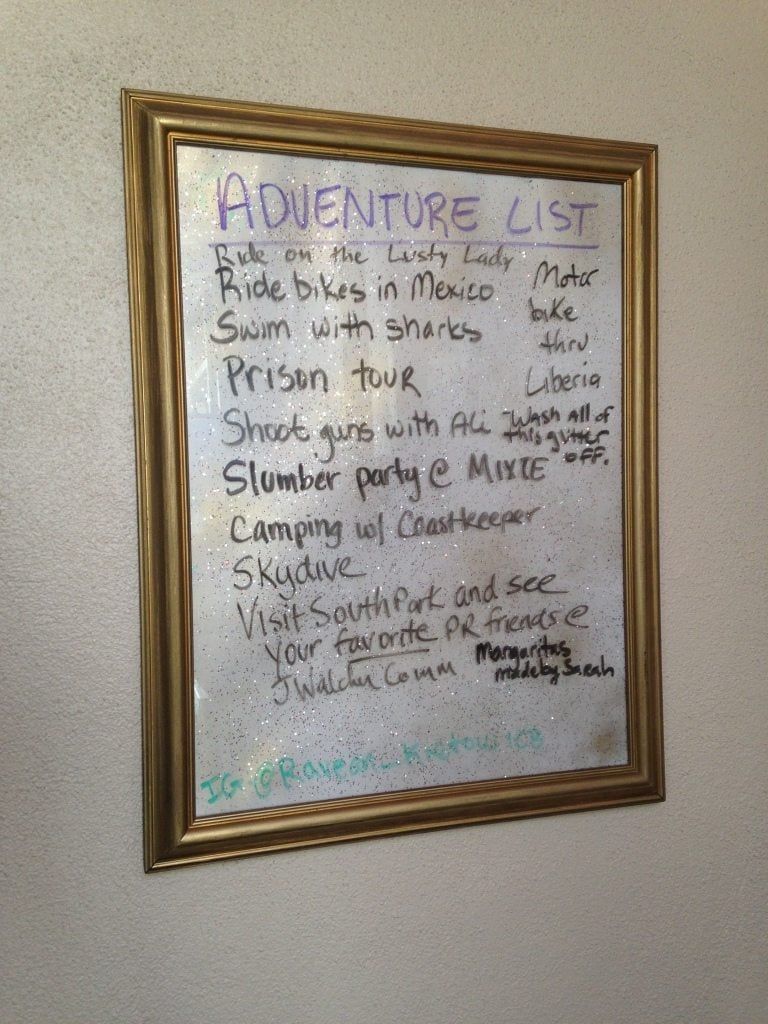 ADVENTURE LIST
Ride on the Lusty Lady
Ride bikes in Mexico
Motor
bike
thru
Liberia
Swim with sharks
Prison tour
Shoot guns with Ali
-Wash all of
this glitter
off.
Slumber party @ MIXTE
Camping w/ Coastkeeper
Skydive
Visit South Park and see
your favorite PR friends @
JWalcher Comm
Margaritas
made by Sarah
IG @